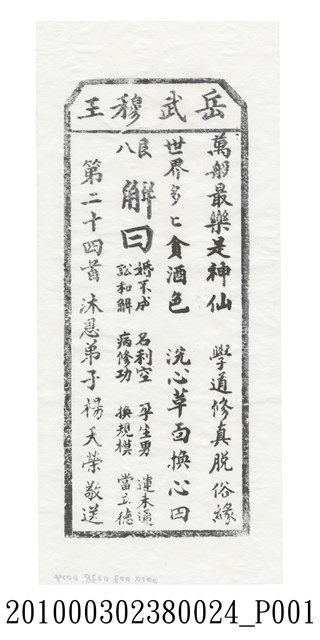 岳武穆王
萬般最樂是神仙 學道修真脫俗緣
世界多匕貪酒色 洗心革面換心田
艮八
解曰
婚不成 名利空 孕生男 運未通
訟和解 病修功 換規模 當立德
第二十四首 沐恩弟子楊天榮敬送
201000302380024_P001